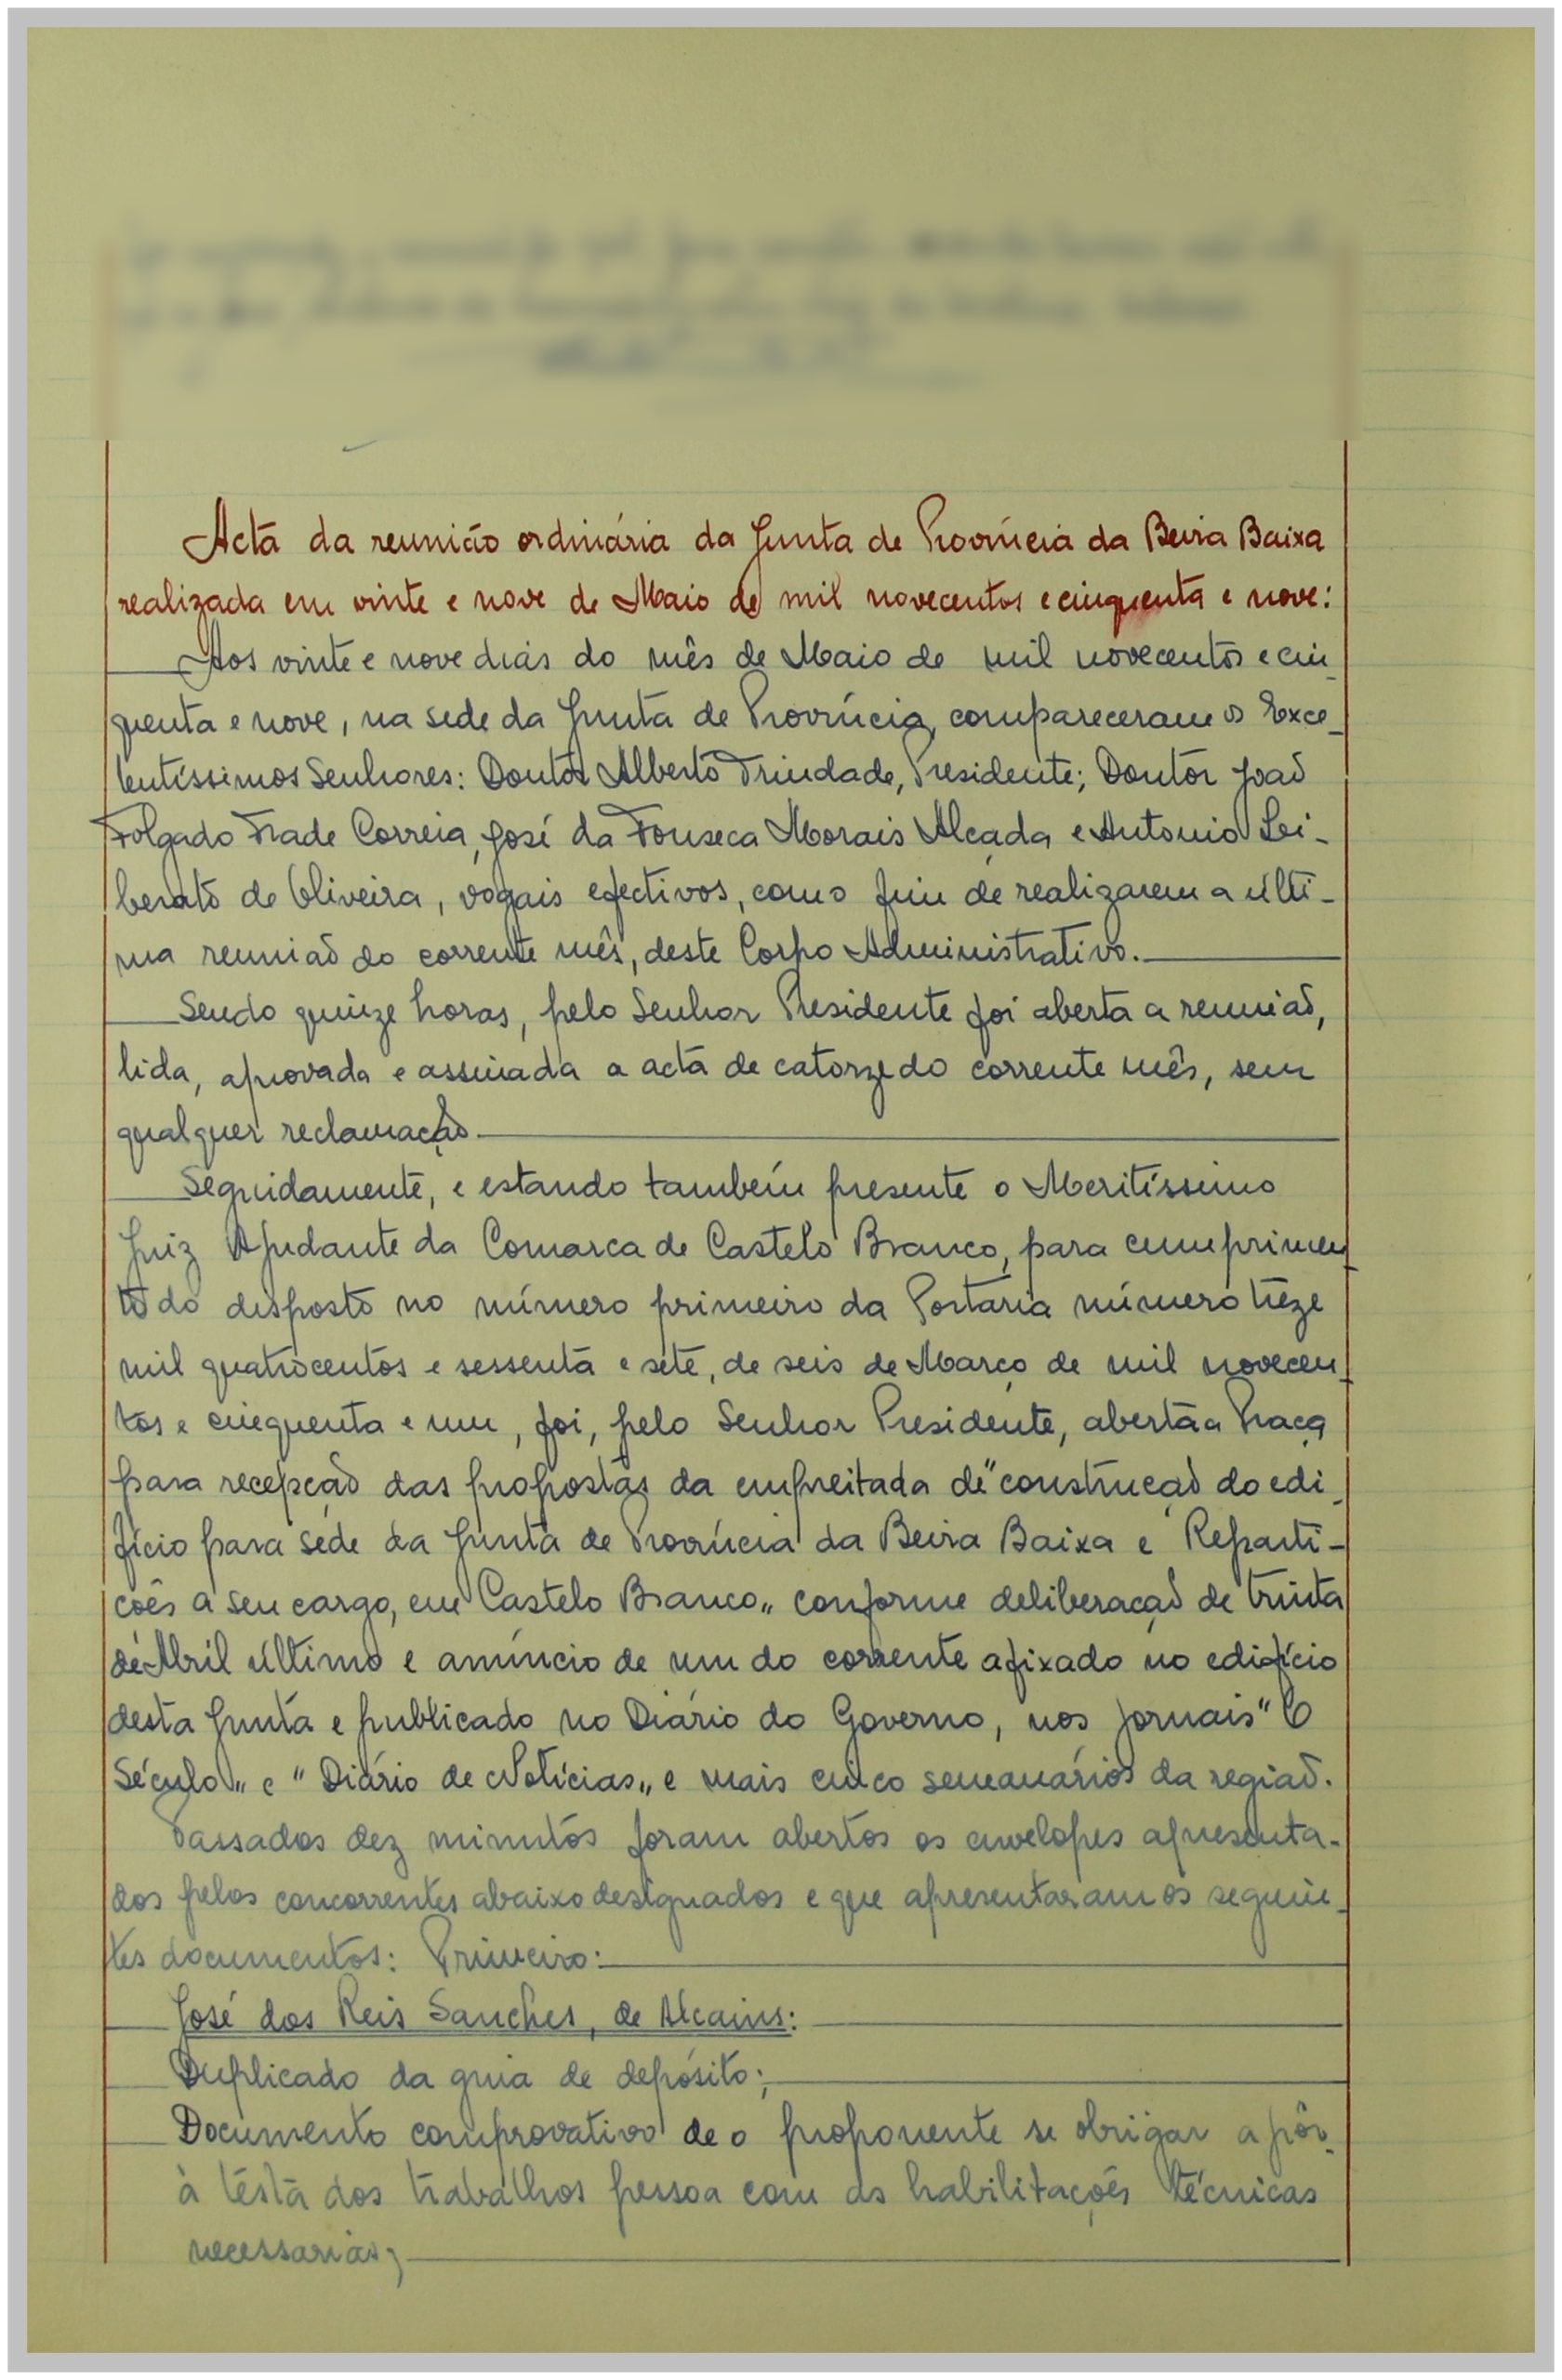 Acta da reunião ordinária da Junta de Província da Beira Baixa
realizada em vinte e nove de Maio de mil novecentos e cinquenta e nove:
Aos vinte e nove dias do mês de Maio de mil novecentos e cin_
quenta e nove, na sede da Junta de Província, compareceram os Exce_
lentíssimos Senhores: Doutor Alberto Trindade, Presidente; Doutor João
Folgado Frade Correia, José da Fonseca Morais Alçada e Antonio Lei-
berato de Oliveira, vogais efectivos, com o fim de realizarem a últi-
ma reunião do corrente mês, deste Corpo Administrativo.
Sendo quinze horas, pelo Senhor Presidente foi aberta a reunião,
lida, aprovada e assinada a acta de catorze do corrente mês, sem
qualquer reclamação.
Seguidamente, e estando também presente o Meritíssimo
Juiz Ajudante da Comarca de Castelo Branco, para cumprimen_
to do disposto no número primeiro da Portaria número treze
mil quatrocentos e sessenta e sete, de seis de Março de mil novecen_
tos e cinquenta e um, foi, pelo Senhor Presidente, aberta a Praça
para recepção das propostas da empreitada de "construção do edi_
fício para sede da Junta de Província da Beira Baixa e Reparti-
ções a seu cargo, em Castelo Branco„ conforme deliberação de trinta
de Abril último e anúncio de um do corrente afixado no edifício
desta Junta e publicado no Diário do Governo, nos jornais "O
Século„ e "Diário de Notícias„ e mais cinco semanários da região.
Passados dez minutos foram abertos os envelopes apresenta-
dos pelos concorrentes abaixo designados e que apresentaram os seguin_
tes documentos: Primeiro:
José dos Reis Sanches, de Alcains:
Duplicado da guia de depósito;
Documento comprovativo de o proponente se obrigar a pôr
à testa dos trabalhos pessoa com as habilitações técnicas
necessarias;